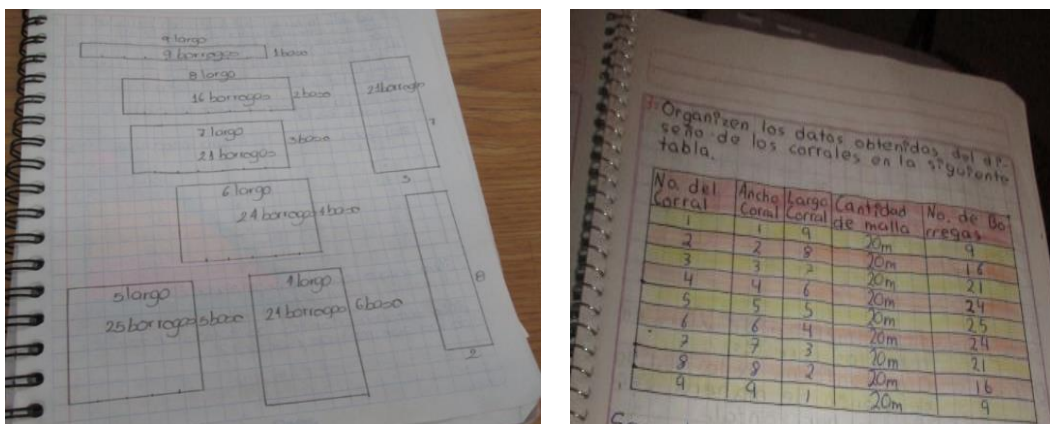 9 largo
9 borregos 1 base
8 largo
16 borregos 2 base
7 largo
21 borregos 3 base
21 borregos
7
3
6 largo
24 borregos 4 base
5 largo
25 borregos 5 base
4 largo
24 borregos 6 base
8
2
3: Organizen los datos obtenidos del di-
seño de los corrales en la siguiente
tabla.
No. del Corral | Ancho Corral | Largo Corral | Cantidad de malla | No. de Bo-rregas
1 | 1 | 9 | 20m | 9
2 | 2 | 8 | 20m | 16
3 | 3 | 7 | 20m | 21
4 | 4 | 6 | 20m | 24
5 | 5 | 5 | 20m | 25
6 | 6 | 4 | 20m | 24
7 | 7 | 3 | 20m | 21
8 | 8 | 2 | 20m | 16
9 | 9 | 1 | 20m | 9